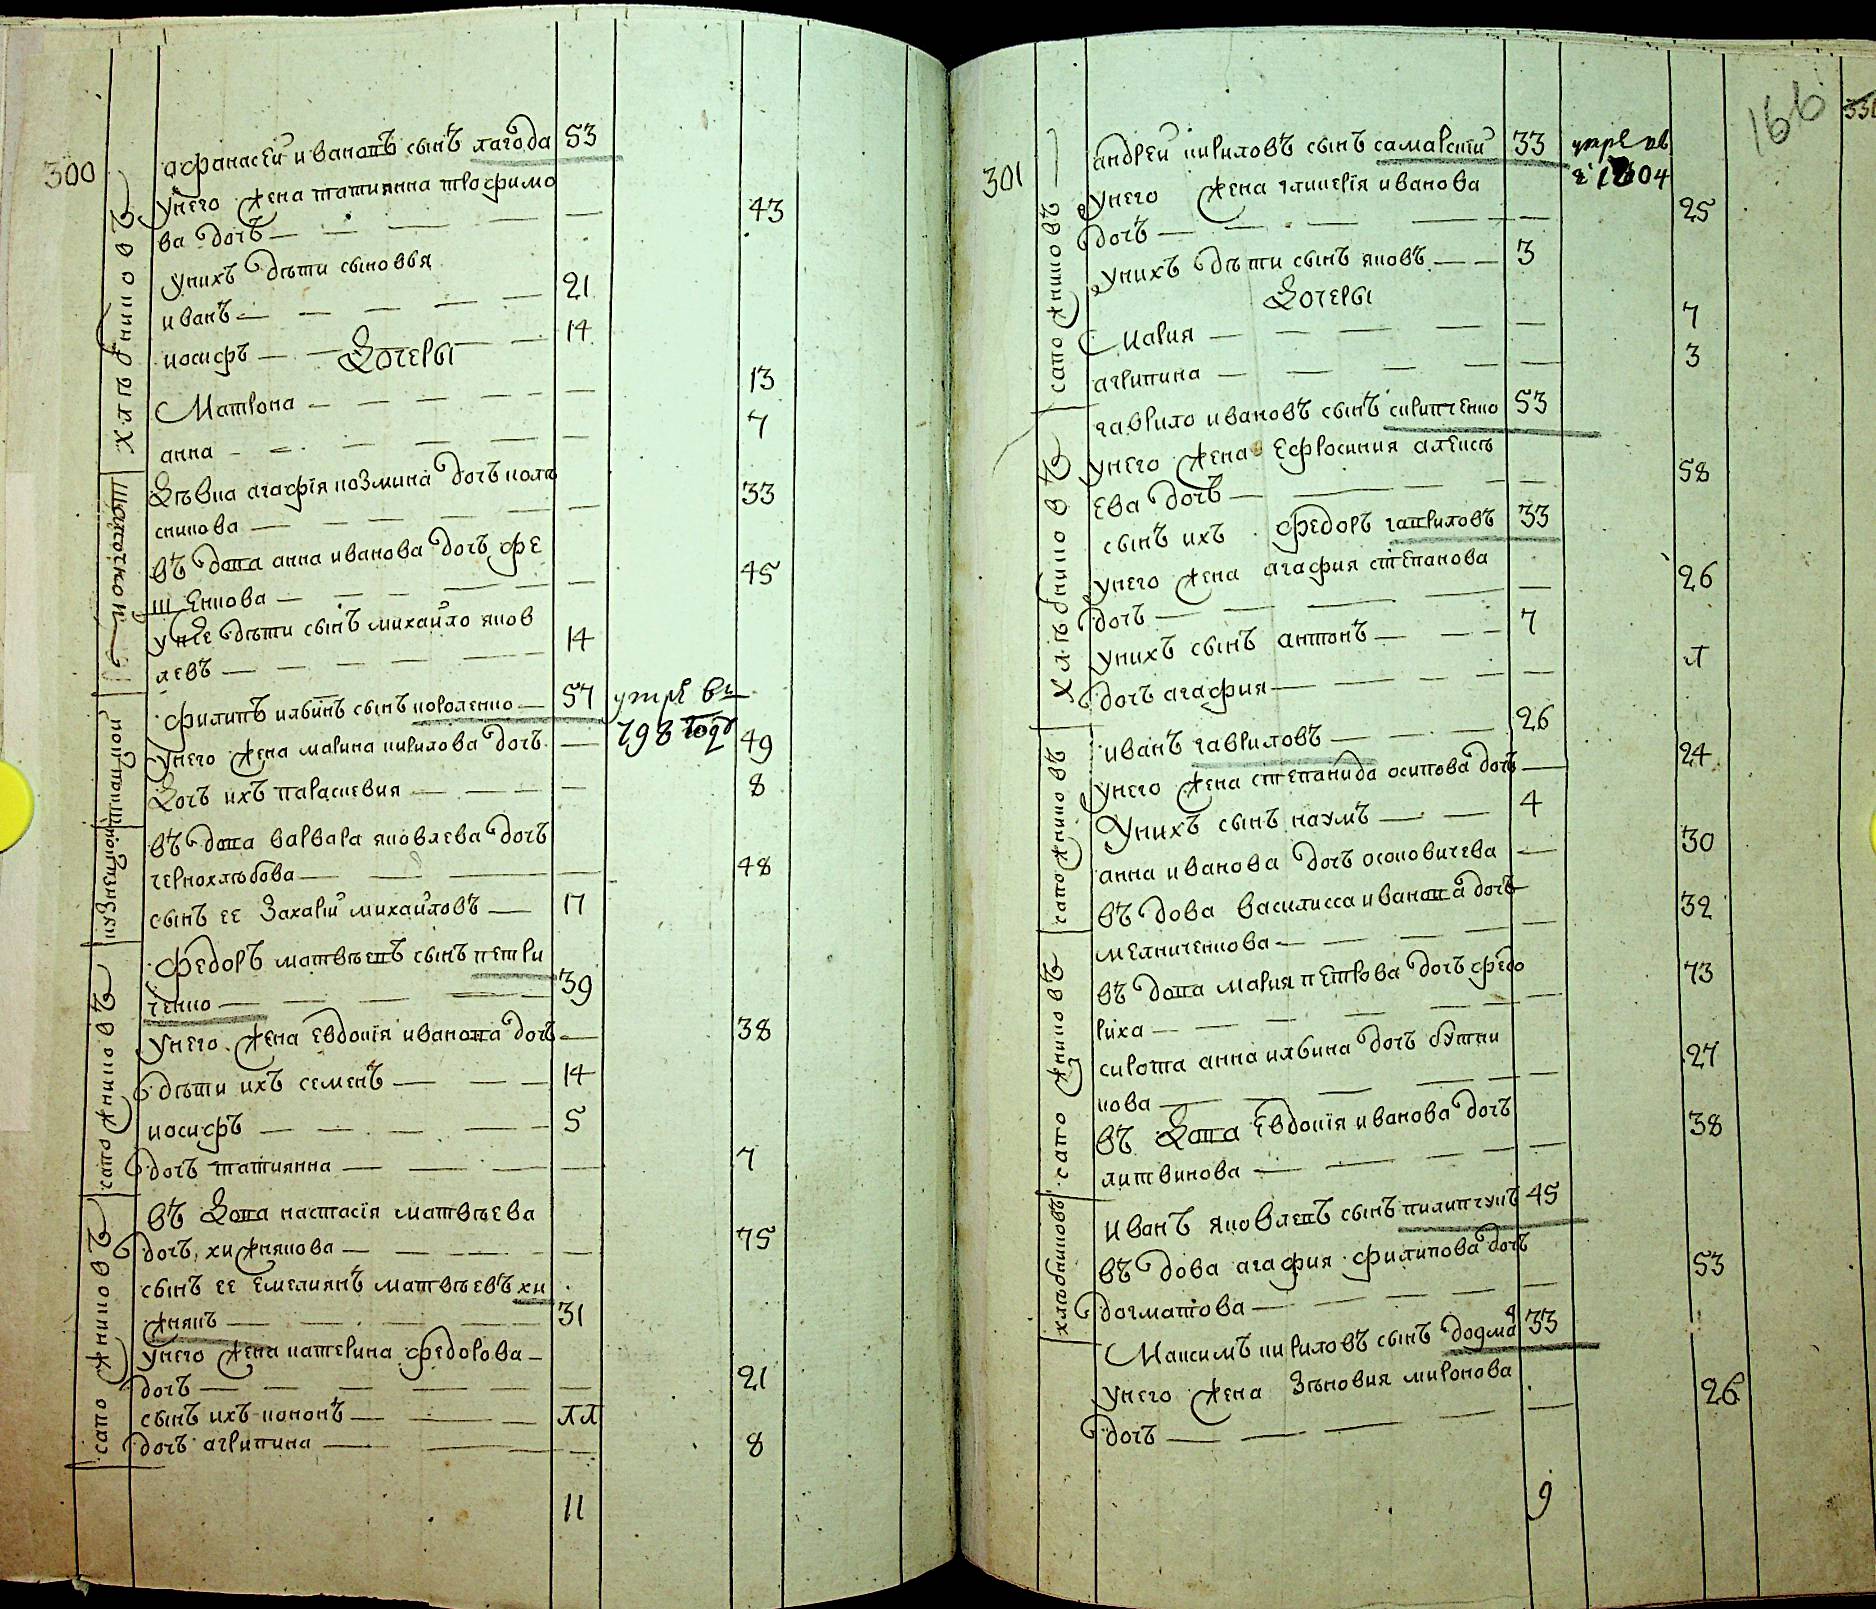 300
Хлѣбниковъ
афанасей ивановъ сынъ лагода 53
унего жена татиянна трофимо
ва дочъ 43
унихъ дѣти сыновья
иванъ 21
иосифъ 14
Дочеры
Матрона 13
анна 7
Дѣвка агафія козмина дочъ коля
сникова 33
въ дова анна иванова дочъ фе
щенкова 45
унее дѣти сынъ михайло яков
левъ 14
филипъ илъинъ сынъ коваленко 57 умре въ
798 году
унего жена марина кирилова дочъ 49
Дочъ ихъ параскевия 8
кузнецкой
въ дова варвара яковлева дочъ
чернохлѣбова 48
сынъ ее Захарій михайловъ 17
сапожниковъ
федоръ матвѣевъ сынъ петри
ченко 39
унего жена Евдокія иванова дочъ 38
дѣти ихъ семенъ 14
иосифъ 5
дочъ татиянна 7
сапожниковъ
въ Дова настасія матвѣева
дочъ хижнякова 75
сынъ ее Емелиянъ матвѣевъ хи
жнякъ 31
унего жена катерина федорова
дочъ 21
сынъ ихъ кононъ
дочъ агрипина 8
11
166
331
301
сапожниковъ
андрей кириловъ сынъ самарскій 33 умре въ
1804
унего жена гликерія иванова
дочъ 25
унихъ дѣти сынъ яковъ 3
Дочеры
Мария 7
агрипина 3
Хлѣбниковъ
гаврило ивановъ сынъ скрипченко 53
унего жена Ефросиния алексѣ
ева дочъ 58
сынъ ихъ федоръ гавриловъ 33
унего жена агафия степанова
дочъ 26
унихъ сынъ антонъ 7
дочъ агафия
сапожниковъ
иванъ гавриловъ 26
унего жена степанида осипова дочъ 24
Унихъ сынъ наумъ 4
анна иванова дочъ осоковичева 30
въ дова василисса иванова дочъ
мелниченкова 32
сапожниковъ
въ дова мария петрова дочъ федо
риха 73
сирота анна илъина дочъ бутни
кова 27
въ Дова Евдокія иванова дочъ
литвинова 38
хлѣбниковъ
Иванъ яковлевъ сынъ пилипчукъ 45
въ дова агафия филипова дочъ
догматова 53
Максимъ кириловъ сынъ догма 33
унего жена Зѣновия миронова
дочъ 26
9